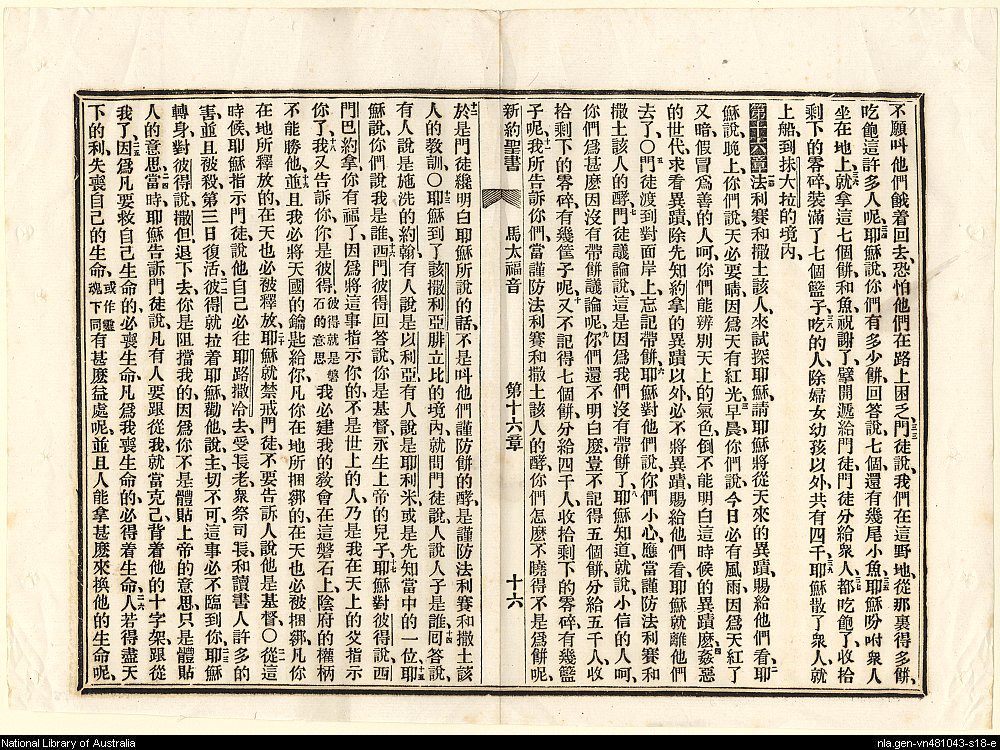 不願呌他們餓着回去、恐怕他們在路上困乏、門徒說、我們在這野地、從那裏得多餅、
吃飽這許多人呢、耶穌說、你們有多少餅、回答說、七個、還有幾尾小魚、耶穌吩咐衆人
坐在地上、就拿這七個餅和魚、祝謝了、擘開、遞給門徒、門徒分給衆人、都吃飽了、收拾
剩下的零碎、裝滿了七個籃子、吃的人、除婦女幼孩以外、共有四千、耶穌散了衆人、就
上船、到抹大拉的境內、
第十六章 法利賽和撒土該人來試探耶穌、請耶穌將從天來的異蹟、賜給他們看、耶
穌說、晚上、你們說、天必要晴、因爲天有紅光、早晨、你們說、今日必有風雨、因爲天紅了
又暗、假冒爲善的人呵、你們能辨別天上的氣色、倒不能明白這時候的異蹟麽、姦惡
的世代、求看異蹟、除先知約拿的異蹟以外、必不將異蹟賜給他們看、耶穌就離他們
去了、〇門徒渡到對面岸上、忘記帶餅、耶穌對他們說、你們小心、應當謹防法利賽和
撒土該人的酵、門徒議論說、這是因爲我們沒有帶餅了、耶穌知道、就說、小信的人呵、
你們爲甚麽因沒有帶餅議論呢、你們還不明白麽、豈不記得五個餅、分給五千人、收
拾剩下的零碎、有幾筐子呢、又不記得七個餅、分給四千人、收拾剩下的零碎、有幾籃
子呢、我所告訴你們、當謹防法利賽和撒土該人的酵、你們怎麽不曉得不是爲餅呢、
新約聖書 馬太福音 第十六章 十六
於是門徒纔明白耶穌所說的話、不是呌他們謹防餅的酵、是謹防法利賽和撒土該
人的教訓、〇耶穌到了該撒利亞腓立比的境內、就問門徒說、人說人子是誰、回答說、
有人說是施洗的約翰、有人說是以利亞、有人說是耶利米、或是先知當中的一位、耶
穌說、你們說我是誰、西門彼得回答說、你是基督、永生上帝的兒子、耶穌對彼得說、西
門巴約拿、你有福了、因爲將這事指示你的、不是世上的人、乃是我在天上的父指示
你了、我又告訴你、你是彼得、彼得就是磐石的意思 我必建我的教會在這磐石上、陰府的權柄
不能勝他、並且我必將天國的鑰匙給你、凡你在地所捆綁的、在天也必被捆綁、凡你
在地所釋放的、在天也必被釋放、耶穌就禁戒門徒、不要告訴人說他是基督、〇從這
時候、耶穌指示門徒說、他自己必往耶路撒冷去、受長老衆祭司長、和讀書人許多的
害、並且被殺、第三日復活、彼得就拉着耶穌勸他說、主、切不可、這事必不臨到你、耶穌
轉身、對彼得說、撒但、退下去、你是阻擋我的、因爲你不是體貼上帝的意思、只是體貼
人的意思、當時耶穌告訴門徒說、凡有人要跟從我、就當克己、背着他的十字架跟從
我了、因爲凡要救自己生命的、必喪生命、凡爲我喪生命的、必得着生命、人若得盡天
下的利、失喪自己的生命、或作靈魂下同 有甚麽益處呢、並且人能拿甚麽來換他的生命呢、
National Library of Australia
nla.gen-vn481043-s18-e